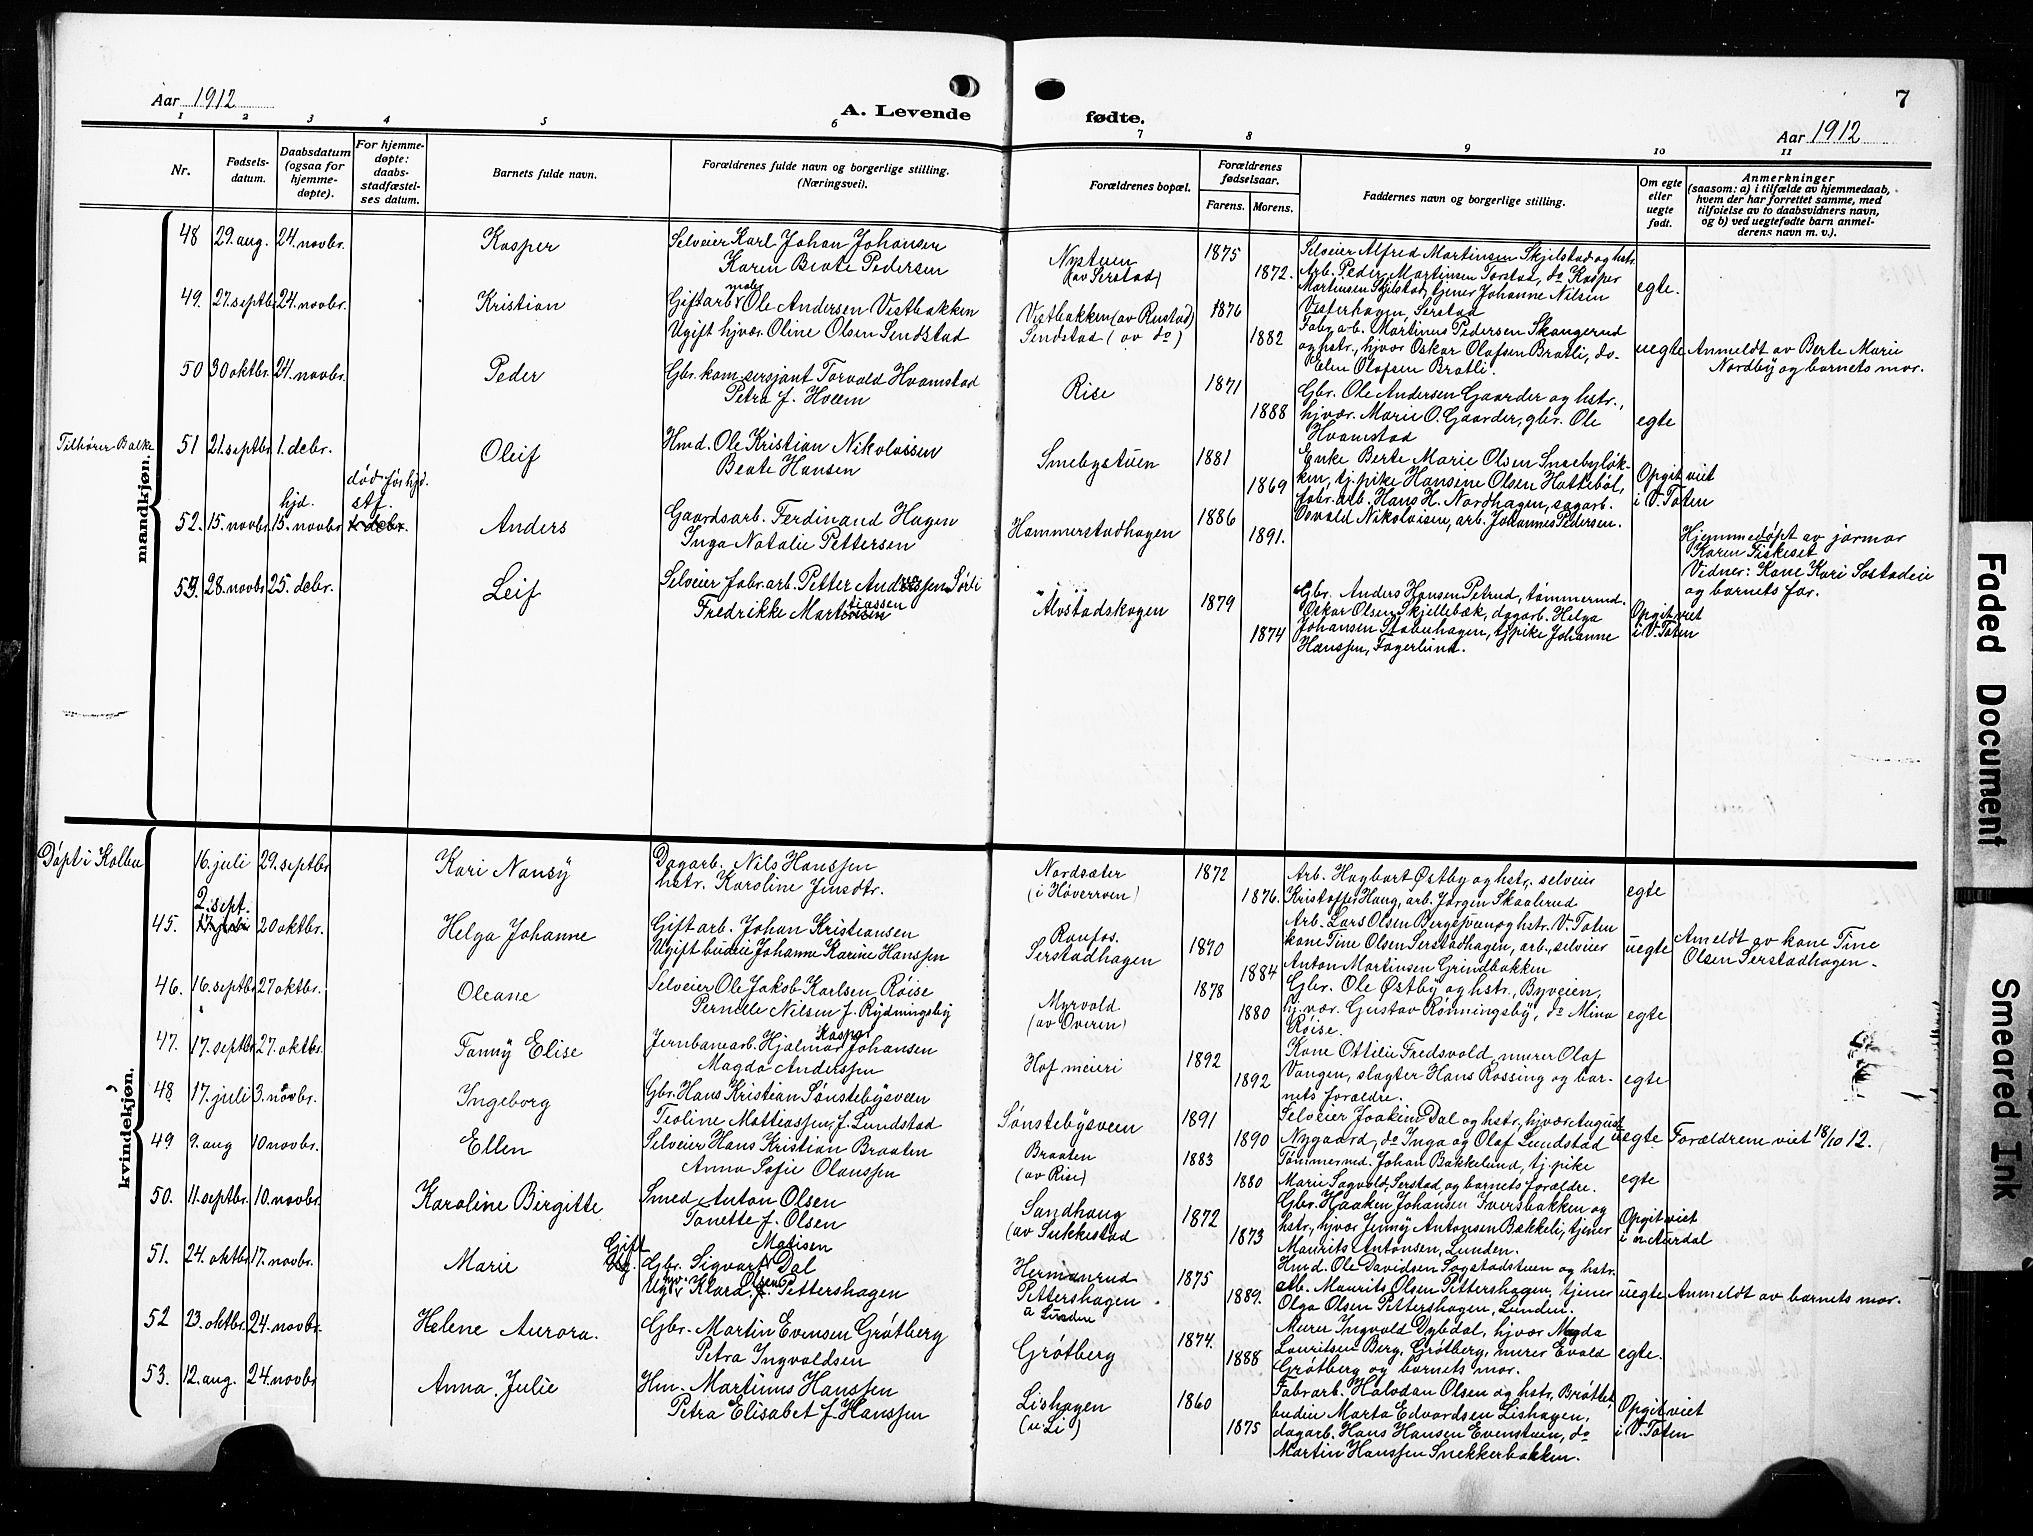 Aar 1912
A. Levende
fødte.
7
Aar 1912
1 2 3 4 5 6 7 8 9 10 11
Nr.
Fødsels-
datum.
Daabsdatum
(ogsaa for
hjemme-
døpte).
For hjemme-
døpte:
daabs-
stadfæstel-
ses datum.
Barnets fulde navn.
Forældrenes fulde navn og borgerlige stilling.
(Næringsvei).
Forældrenes bopæl.
Forældrenes
fødselsaar.
Farens. Morens.
Faddernes navn og borgerlige stilling.
Om egte
eller
uegte
født.
Anmerkninger
(saasom: a) i tilfælde av hjemmedaab,
hvem der har forrettet samme, med
tilføielse av to daabsvidners navn,
og b) ved uegtefødte barn anmel-
derens navn m. v.).
mandkjøn.
48 29. aug. 24. novbr. Kasper
Selveier Karl Johan Johansen
Karen Beate Pedersen
Nystuen
(av Serstad)
1875
1872.
Selveier Alfred Martinsen Skjelstad og hstr.
Arb. Peder Martinsen Torstad, do Kasper
Martinsen Skjelstad, tjener Johanne Nilsen
Vesterhagen, Serstad
egte.
49. 27. septbr. 24. novbr. Kristian
Gift arb. Ole Andersen Vestbakken
Ugift hjvær. Oline Olsen Sendstad
Vestbakken (av Rustad)
Sendstad (av do)
1876
1882
Fabr. arb. Martinus Pedersen Skangerud
og hstr., hjvær Oskar Olafsen Bratli, do-
Elen Olafsen Bratli.
uegte
Anmeldt av Berte Marie
Nordby og barnets mor.
50 30 oktbr. 24. novbr. Peder
Gbr. kom. sersjant Torvald Hvamstad
Petra f. Hveem
Rise
1871
1888
Gbr. Ole Andersen Gaarder og hstr.,
hjvær. Marie O. Gaarder, gbr. Ole
Hvamstad
egte
Tilhører Balke
51 21. septbr. 1. debr. Oleif
Hmd. Ole Kristian Nikolaisen
Beate Hansen
Smebystuen
1881
1869
Enke Berte Marie Olsen Smebyløk-
ken, tj. pike Hansine Olsen Hattebøl,
fabr. arb. Hans H. Nordhagen, sagarb.
Osvald Nikolaisen, arb. Johannes Pedersen.
Opgit viet
i V. Toten
52. 15. novbr. hjd. 15. novbr. død før hjd. stf. Anders
Gaardsarb. Ferdinand Hagen
Inga Natalie Pettersen
Hammerstadhagen
1886
1891.
Hjemmedøpt av jormor
Karen Fiskeset
Vidner: Kone Kari Sostadeie
og barnets far.
53. 28. novbr. 25. debr. Leif
Selveier fabr. arb. Petter Anderssen Sørli
Fredrikke Martiassen
Alvstadskogen
1879
1874
Gbr. Anders Hansen Petrud, tømmermd.
Oskar Olsen Skjellebæk, dagarb. Helga
Johansen Stabuhagen, tj. pike Johanne
Hanssen, Fagerlund.
Opgit viet
i V. Toten
kvindekjøn.
Døpt i Kolbu
16. juli 29. septbr. Kari Nansy
Dagarb. Nils Hanssen
hstr. Karoline Jensdtr.
Nordsæter
(i Høverroen)
1872
1876.
Arb. Hagbart Østby og hstr. selveier
Kristoffer Haug, arb. Jørgen Skaalerud
egte
45. 2. sept. 20 oktbr. Helga Johanne
Gift arb. Johan Kristiansen
Ugift budeie Johanne Karine Hanssen
Raufos.
Serstadhagen
1870
1884
Arb. Lars Olsen Bergsveen og hstr. V. Toten
kone Tine Olsen Serstadhagen, arb., selveier
Anton Martinsen Grindbakken
uegte
Ameldt av kone Tine
Olsen Serstadhagen.
46. 16. septbr. 27 oktbr. Oleane
Selveier Ole Jakob Karlsen Røise
Pernelle Nilsen f. Rydningsby
Myrvold
(av Overen)
1878
1880
Gbr. Ole Østby og hstr., Byveien,
hjvær. Gustav Rønningsby, do Mina
Røise.
egte
47. 17. septbr. 27. oktbr. Fanny Elise
Jernbanearb. Hjalmar Kaspar Johansen
Magda Anderssen
Hof meieri
1892
1892
Kone Ottilie Fredsvold, murer Olaf
Vangen, slagter Hans Rossing og bar-
nets forældre.
egte
48 17. juli 3. novbr. Ingeborg
Gbr. Hans Kristian Sønstebysveen
Teoline Mattiassen f. Lundstad
Sønstebysveen
1891
1890
Selveier Joakim Dal og hstr., hjvær August
Nygaard, do Inga og Olaf Lundstad
uegte
Forældrene viet 18/10 12.
49 9. aug 10 novbr. Ellen
Selveier Hans Kristian Braaten
Anna Sofie Olaussen
Braaten
(av Rise)
1883
1880
Tømmermd. Johan Bakkelund, tj. pike
Marie Sagvold, Serstad og barnets forældre.
egte
50. 11. septbr. 10. novbr. Karoline Birgitte
Smed Anton Olsen
Tonette f. Olsen
Sandhaug
(av Sukkestad
1872
1873
Gbr. Haaken Johansen Iversbakken og
hstr., hjvær Jenny Antonsen Bækkeli, tjener
Maurits Antonsen, Lunden.
Opgit viet
i n. Aurdal
51. 24. oktbr. 17. novbr. Marie
Gift Gbr. Sigvart Matisen Dal
Klara Olsen Pettershagen
Hermanrud
Pettershagen
a Lunden
1875
1889.
Hmd. Ole Davidsen Sogstadstuen og hstr.
arb. Maurits Olsen Pettershagen, tjener
Olga Olsen Pettershagen, Lunden.
uegte
Anmeldt av barnets mor.
52 23. oktbr. 24. novbr. Helene Aurora.
Gbr. Martin Evensen Grøtberg
Petra Ingvaldsen
Grøtberg
1874.
1888
Murer Ingvald Dybdal, hjvær Magda
Lauritsen Berg, Grøtberg, murer Evald
Grøtberg og barnets mor.
egte.
53. 12. aug. 24. novbr Anna Julie
Hm. Martinus Hanssen
Petra Elisabet f. Hanssen
Lishagen
(u Li)
1860
1875
Fabr arb. Halvdan Olsen og hstr. Brøttet
budeie Marta Edvardsen Lishagen,
dagarb. Hans Hansen Evenstuen, do
Martin Hanssen Snekkerbakken.
Opgit viet
i V. Toten
Faded Document
Smeared Ink